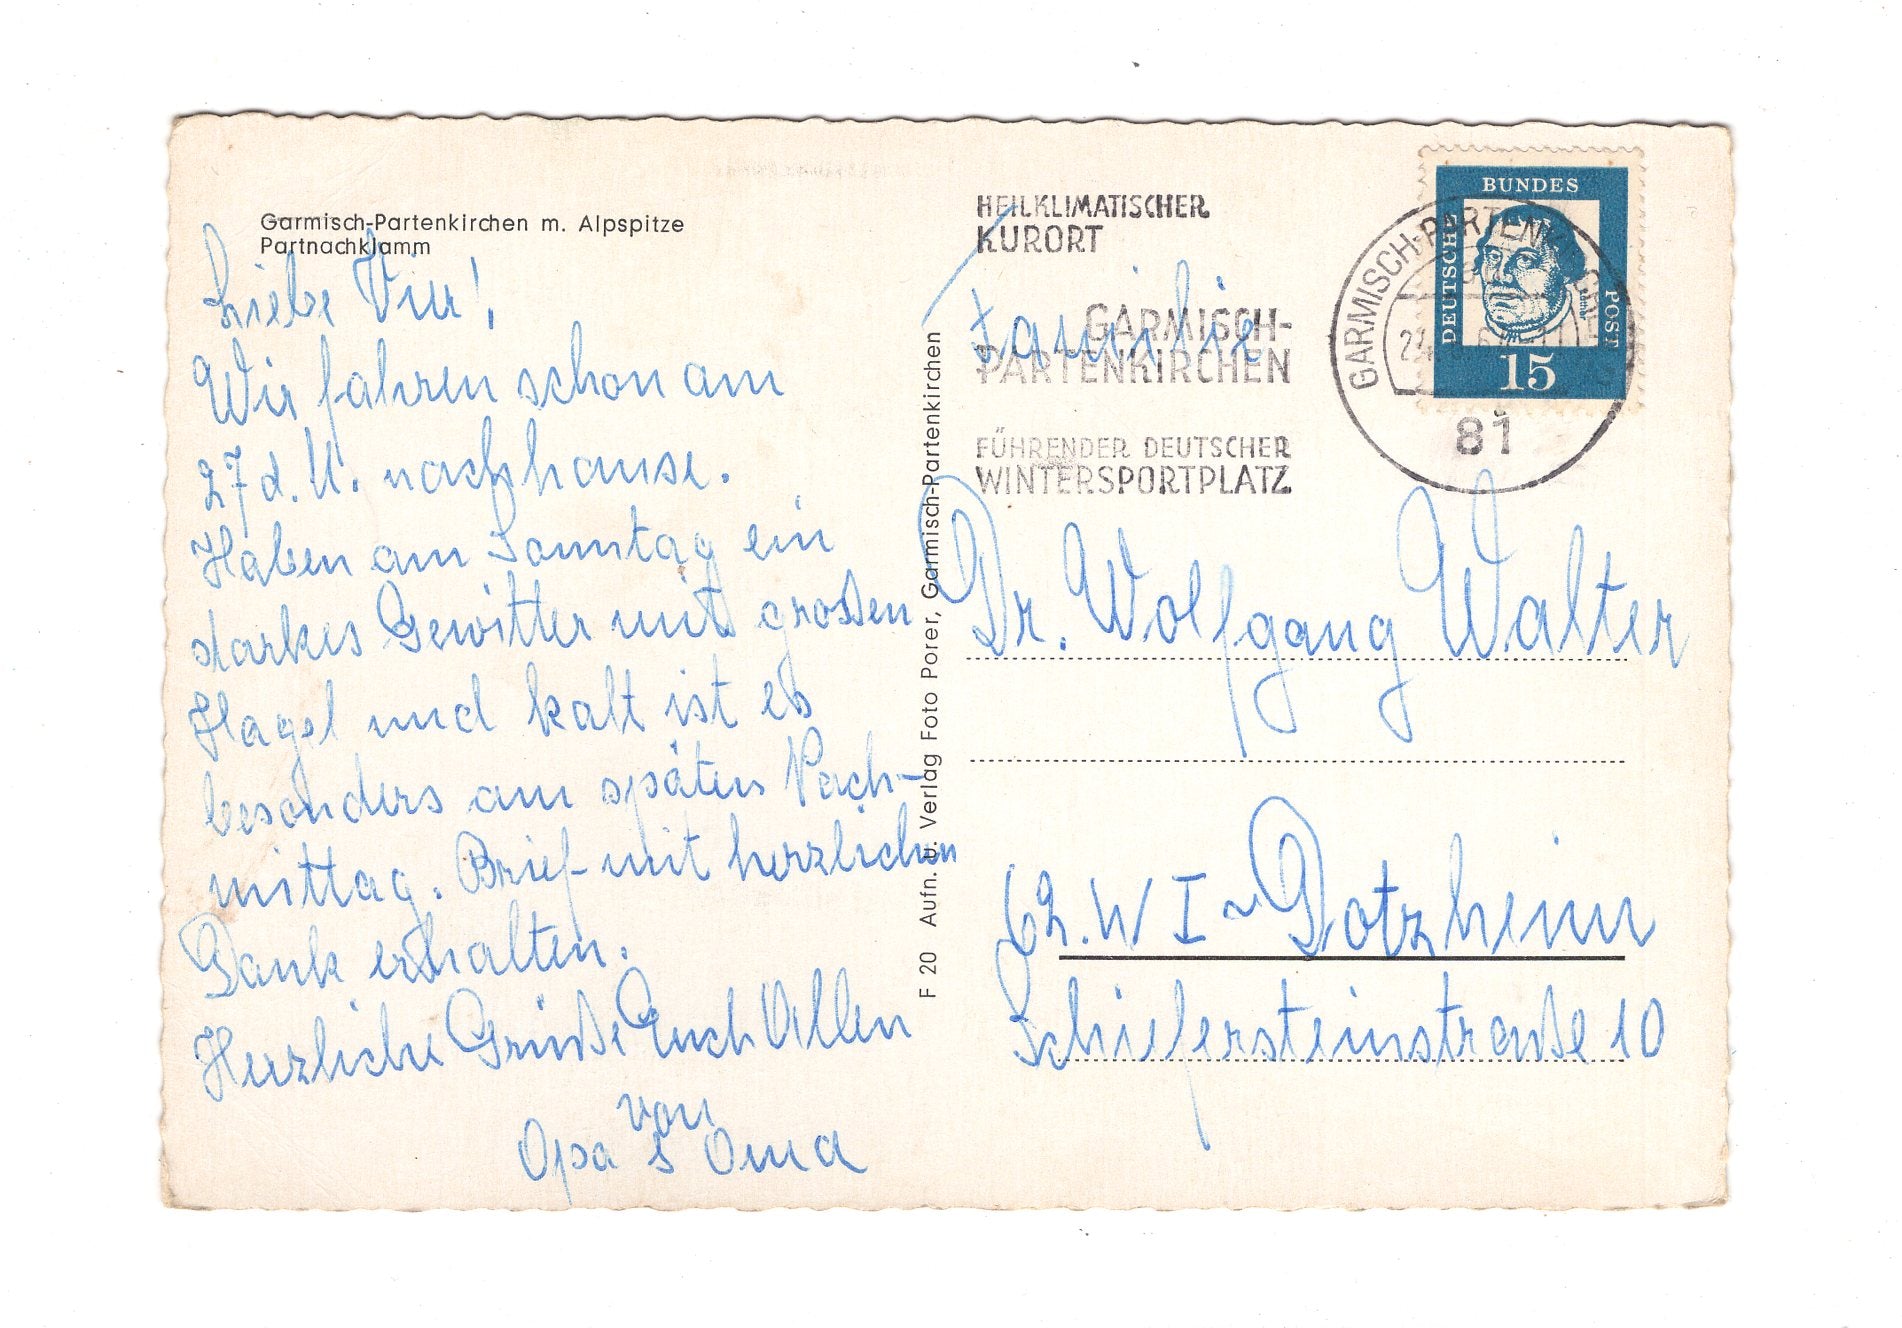 Garmisch-Partenkirchen m. Alpspitze
Partnachklamm
Liebe Vier!
Wir fahren schon am
27 d. M. nachhause.
Haben am Sonntag ein
starkes Gewitter mit großen
Hagel und kalt ist es
besonders am späten Nach-
mittag. Brief mit herzlichen
Dank erhalten.
Herzliche Grüße Euch Allen
von
Opa & Oma
F 20 Aufn. u. Verlag Foto Porer, Garmisch-Partenkirchen
HEILKLIMATISCHER
KURORT
GARMISCH-
PARTENKIRCHEN
FÜHRENDER DEUTSCHER
WINTERSPORTPLATZ
GARMISCH-PARTENKIRCHEN
81
DEUTSCHE
BUNDES
POST
15
Familie
Dr. Wolfgang Walter
62. W I - Dotzheim
Schiefersteinstraße 10